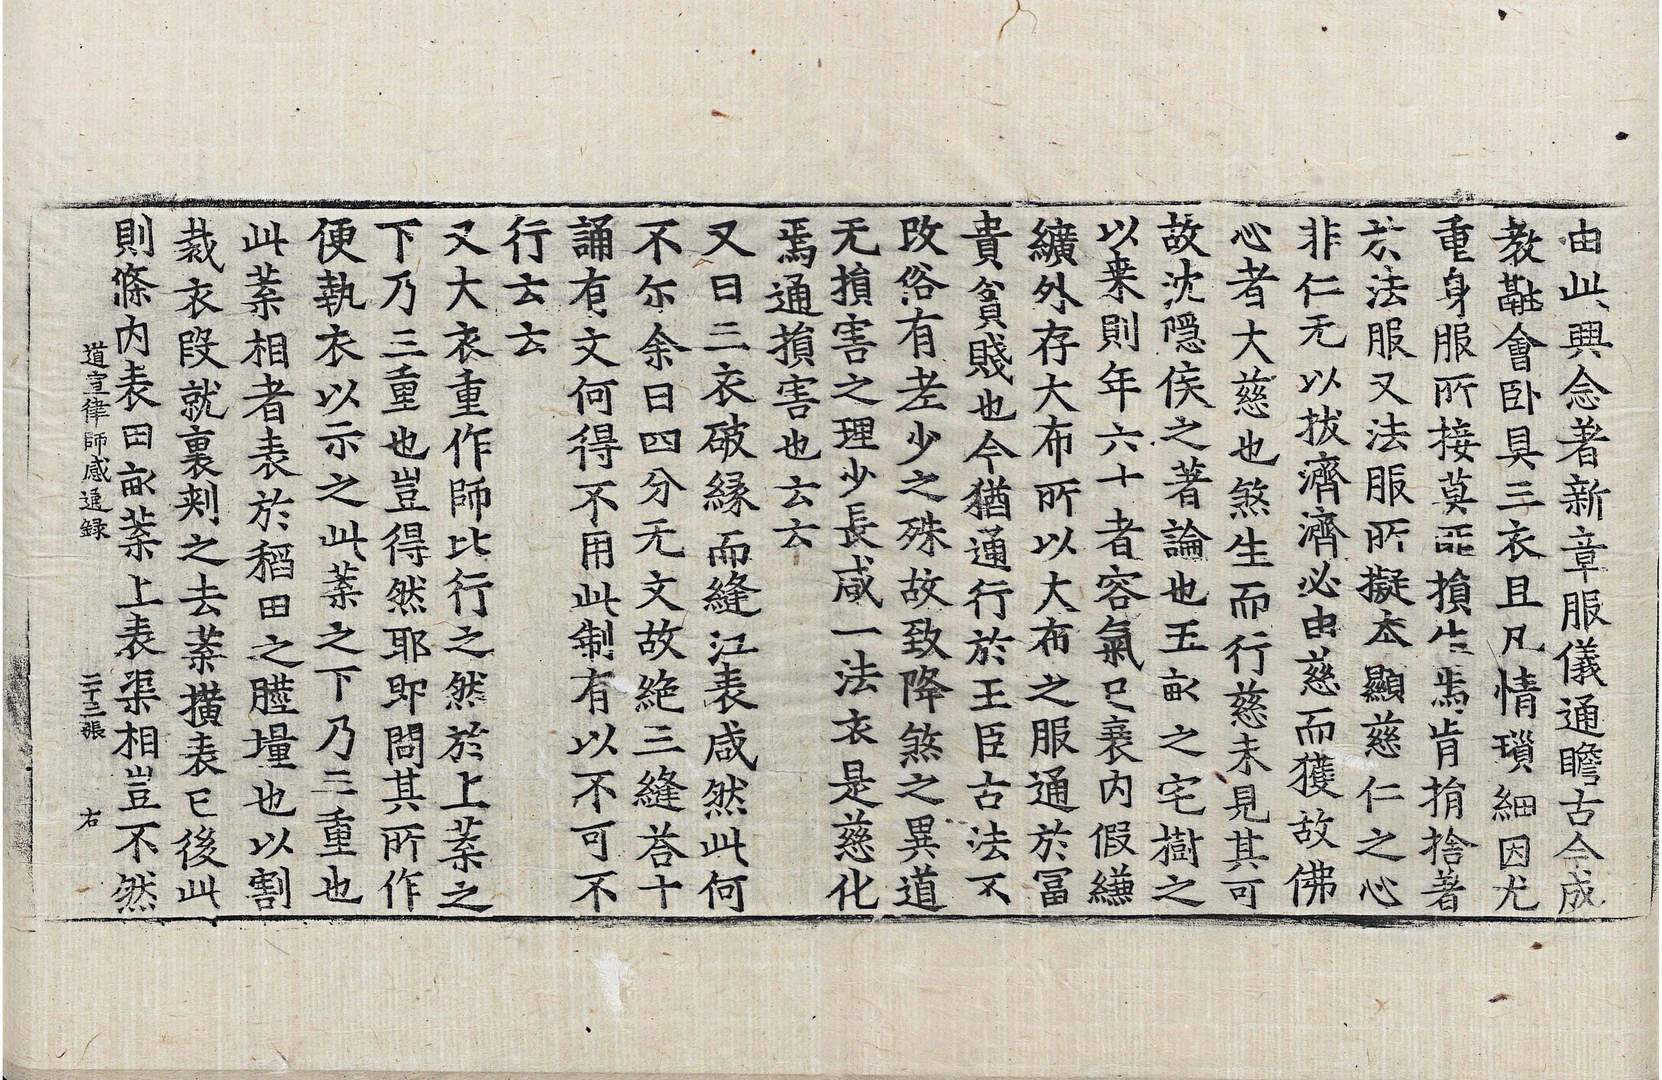 由此興念著新章服儀通瞻古今成
教融會卧具三衣且凡情瑣細因尤
重身服所接莫匪損生焉肯捐捨著
於法服又法服所擬本顯慈仁之心
非仁无以拔濟濟必由慈而獲故佛
心者大慈也煞生而行慈未見其可
故沈隱侯之著論也五畝之宅樹之
以来則年六十者容氣已衰内假縑
纊外存大布所以大布之服通於冨
貴貧賤也今猶通行於王臣古法不
改俗有差少之殊故致降煞之異道
无損害之理少長咸一法衣是慈化
焉通損害也云云
又曰三衣破縁而縫江表咸然此何
不尒余曰四分无文故絶三縫荅十
誦有文何得不用此制有以不可不
行云云
又大衣重作師比行之然於上葉之
下乃三重也豈得然耶即問其所作
便執衣以示之此葉之下乃三重也
此葉相者表於稻田之塍壃也以割
裁衣段就裏刾之去葉撗表已後此
則條内表田畝葉上表渠相豈不然
道宣律師感通録 二十三張 右